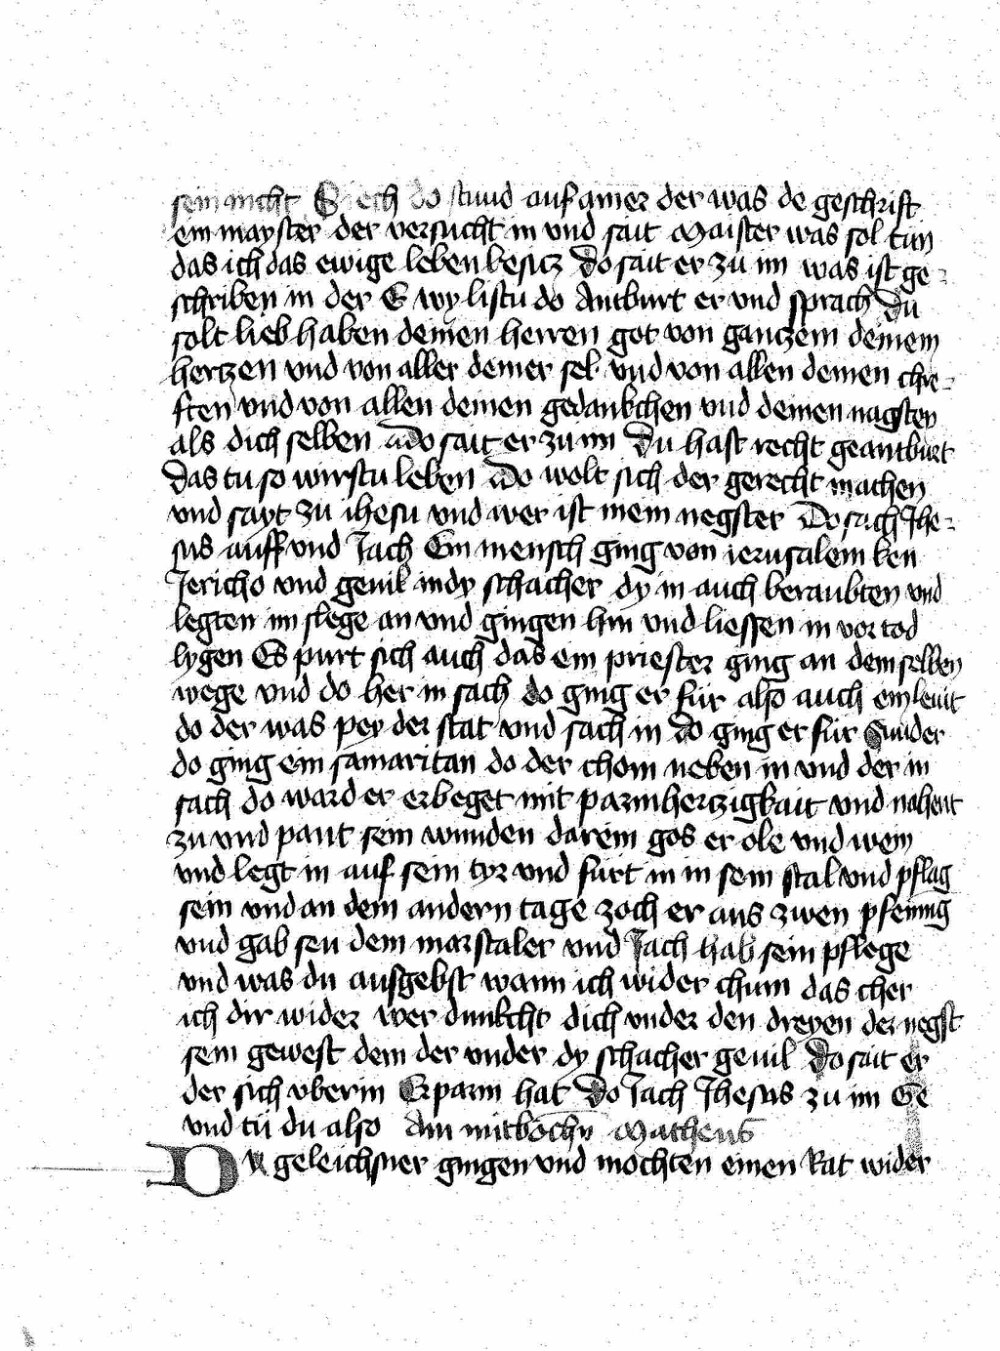 sein nicht Siech do stund auf ainer der was de geschrift
ein mayster der versucht in und sait Maister was sol tun
das ich das ewige leben besicz do sait er zu im was ist ge=
schriben in der E wy listu do Antburt er und sprach du
solt lieb haben deinen herren got von ganczem deinem
herczen und von aller deiner sel und von allen deinen chre=
ften und von allen deinen gedankchen und deinen nagsten
als dich selben Ado sait er zu im Du hast recht geantburt
das tu so wirstu leben Ado wolt sich der gerecht machen
und sayt zu ihesu und wer ist mein negster Do sach Jhe=
sus auff und Jach Ein mensch ging von ierusalem ken
Jericho und geuil in dy schacher dy in auch beraubten und
legten im slege an und gingen hin und liessen in vor tod
lygen Es purt sich auch das ein priester ging an dem selben
wege und do her in sach do ging er für also auch ein leuit
do der was pey der stat und sach in do ging er für Sunder
do ging ein samaritan do der chom neben in und der in
sach do ward er erbeget mit parmherczigkait und nahent
zu und pant sein wunden darein gos er ole und wein
und legt in auf sein tyr und furt in in sein stal und pflag
sein und an dem andern tage zoch er aus zwen pfennig
und gab seu dem marstaler und Jach hab sein pflege
und was du ausgebst wann ich wider chum das cher
ich dir wider wer dunkcht dich under den dreyen der negst
sein gewest dem der under dy schacher geuil do sait er
der sich uber in Erparm hat do Jach Jhesus zu im Ge
und tü du also Am mitbochn Matheus
Dy geleichsner gingen und mochten einen Rat wider